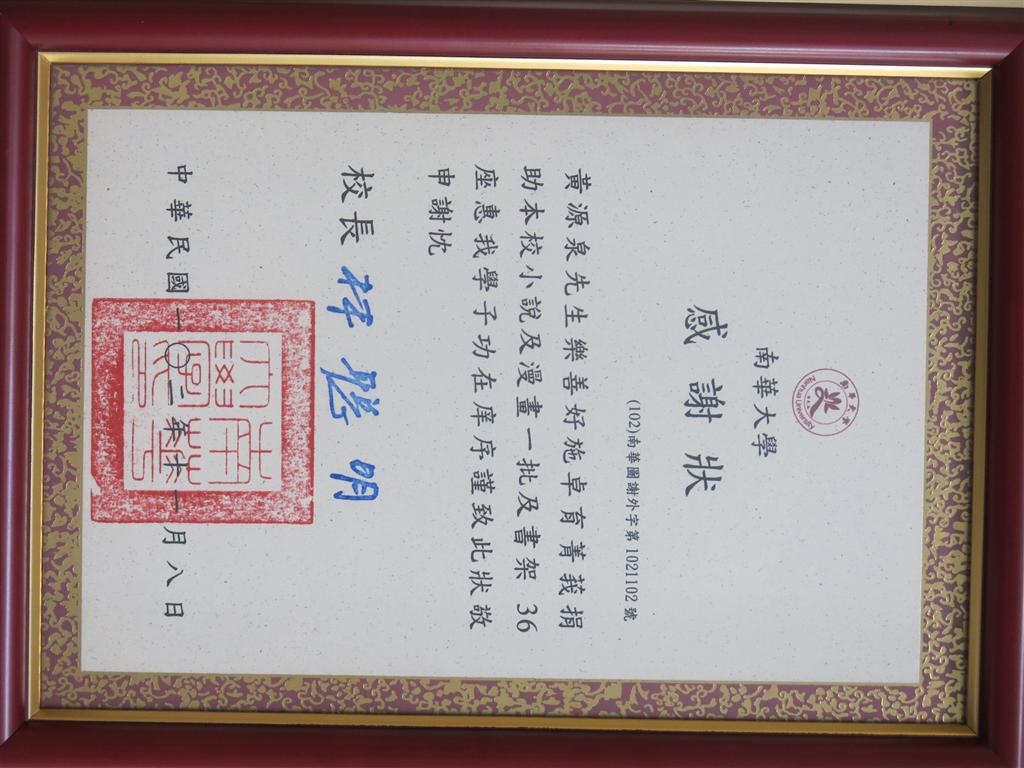 南華大學
Nanhua University
南華大學
感謝狀
(102)南華圖謝外字第1021102號
黃源泉先生樂善好施卓育菁莪捐
助本校小說及漫畫一批及書架 36
座惠我學子功在庠序謹致此狀敬
申謝忱
校長 林聰明
中華民國一〇二年十一月八日